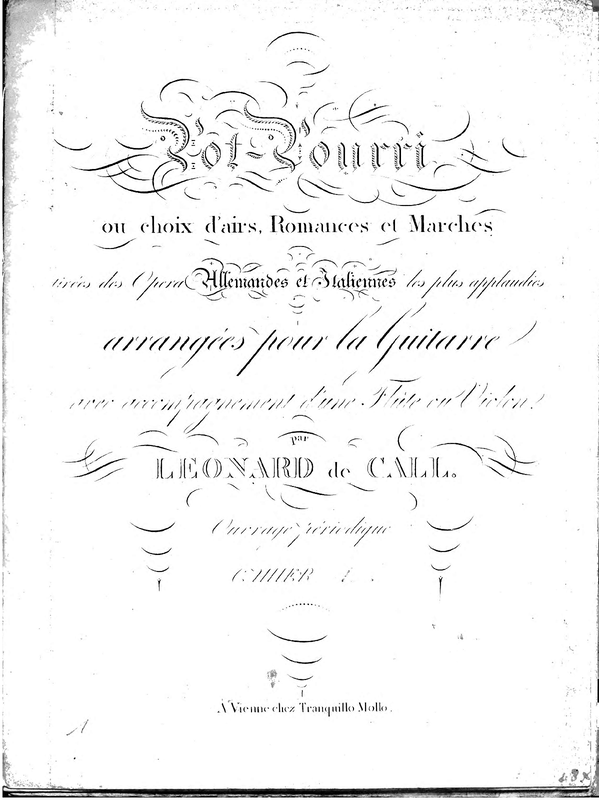 Pot-Pourri
ou choix d'airs, Romances et Marches
tirées des Opera Allemandes et Italiennes les plus applaudies
arrangées pour la Guitarre
avec accompagnement d'une Flûte ou Violon
par
LEONARD de CALL.
Ouvrage périodique
CAHIER
À Vienne chez Tranquillo Mollo.